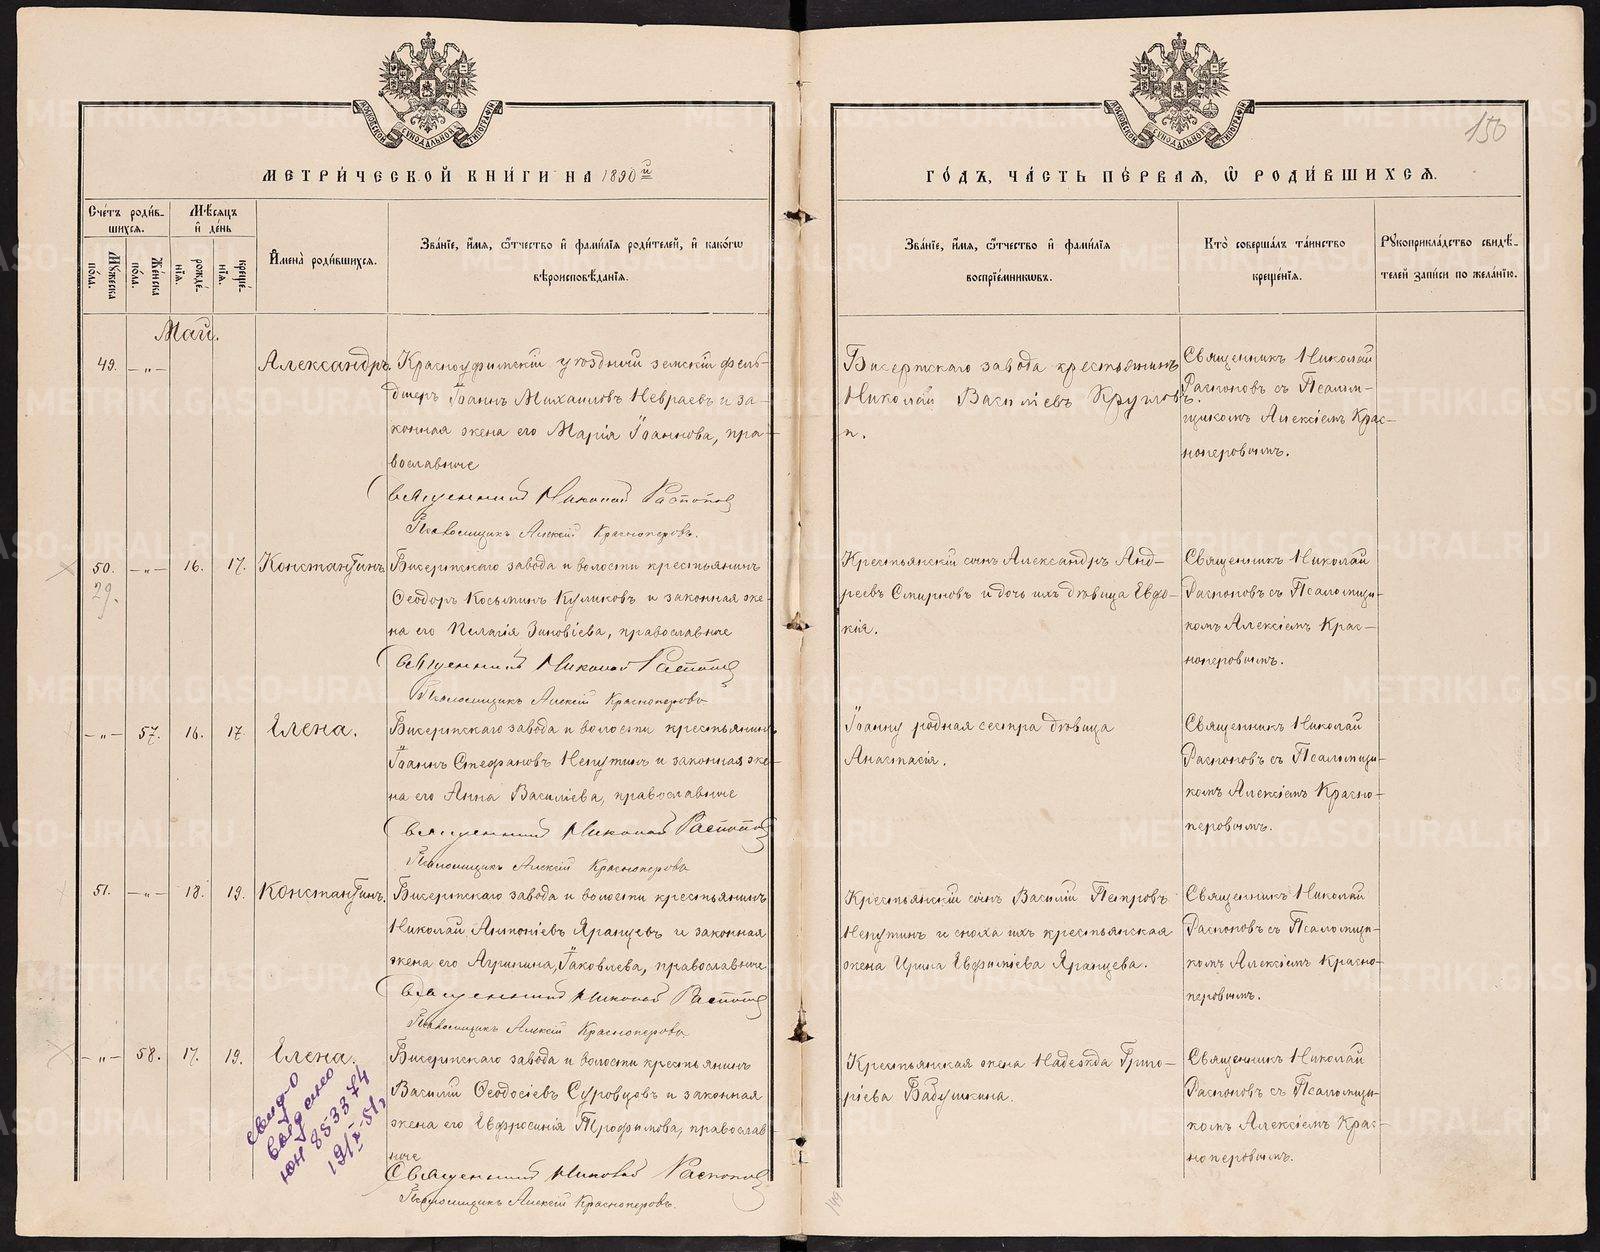 МЕТРИ́ЧЕСКОЙ КНИ́ГИ НА 1890й
Сче́тъ роди́в-
шихся.
Мѣ́сяцъ
и҆ де́нь
Му́жеска
по́ла.
Же́нска
по́ла.
рожде́-
нїя.
креще́-
нїя.
И҆мена̀ роди́вшихся.
Зва́нїе, и҆́мя, ѻ҆́тчество и҆ фами́лїя роди́телей, и҆ како́гѡ
вѣроисповѣ́данїя.
Май.
49. —„— Александръ Красноуфимскій уѣздный земскій фель-
дшеръ Іоаннъ Михаиловъ Невраевъ и за-
конная жена его Марія Іоаннова, пра-
вославные
Священникъ Николай Распоповъ
Псаломщикъ Алексій Красноперовъ.
50. —„— 16. 17. Константинъ Бисертскаго завода и волости крестьянинъ
29.
Ѳеодоръ Косьминъ Куликовъ и законная же-
на его Пелагія Зиновіева, православные
Священникъ Николай Распоповъ
Псаломщикъ Алексій Красноперовъ
—„— 57. 16. 17 Елена. Бисертскаго завода и волости крестьянинъ
Іоаннъ Стефановъ Непутинъ и законная же-
на его Анна Василіева, православные
Священникъ Николай Распоповъ
Псаломщикъ Алексій Красноперовъ
51. —„— 18. 19. Константинъ. Бисертскаго завода и волости крестьянинъ
Николай Антоніевъ Яранцевъ и законная
жена его Агрипина Іаковлева, православные
Священникъ Николай Распоповъ
Псаломщикъ Алексій Красноперовъ
—„— 58. 17. 19. Елена. Бисертскаго завода и волости крестьянинъ
Василій Ѳеодосіевъ Суровцовъ и законная
жена его Евфросинія Трофимова, православ-
ные
Священникъ Николай Распоповъ
Псаломщикъ Алексій Красноперовъ.
свид-о
выдано
ЮН 853374
19/X-51г
ГО́ДЪ, ЧА́СТЬ ПЕ́РВАЯ, Ѽ РОДИ́ВШИХСЯ.
150
Зва́нїе, и҆́мя, ѻ҆́тчество и҆ фами́лїя
воспрїе́мникѡвъ.
Кто̀ соверша́лъ та́инство
креще́нїя.
Рꙋкоприкла́дство свидѣ́-
телей за́писи по жела́нїю.
Бисертскаго завода крестьянинъ
Николай Василіевъ Кругловъ.
п.
Священникъ Николай
Распоповъ съ Псалом-
щикомъ Алексіемъ Крас-
ноперовымъ.
Крестьянскій сынъ Александръ Анд-
реевъ Смирновъ и дочь ихъ дѣвица Евдо-
кія.
Священникъ Николай
Распоповъ съ Псаломщи-
комъ Алексіемъ Крас-
ноперовымъ.
Іоанну родная сестра дѣвица
Анастасія.
Священникъ Николай
Распоповъ съ Псаломщи-
комъ Алексіемъ Красно-
перовымъ.
Крестьянскій сынъ Василій Петровъ
Непутинъ и сноха ихъ крестьянская
жена Ирина Евфиміева Яранцева.
Священникъ Николай
Распоповъ съ Псаломщи-
комъ Алексіемъ Красно-
перовымъ.
Крестьянская жена Надежда Григо-
ріева Бабушкина.
Священникъ Николай
Распоповъ съ Псаломщи-
комъ Алексіемъ Крас-
ноперовымъ.
149
METRIKI.GASO-URAL.RU